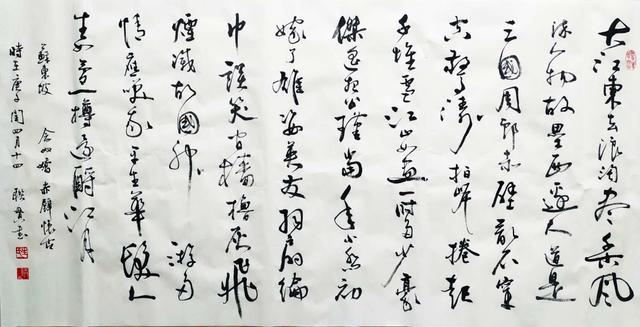 大江東去浪淘尽千古風
流人物故壘西邊人道是
三國周郎赤壁亂石穿
空驚濤拍岸捲起
千堆雪江山如畫一時多少豪
傑遥想公瑾當年小喬初
嫁了雄姿英发羽扇綸
巾談笑間檣櫓灰飛
煙滅故國神游多
情應笑我早生華髮人
一樽還酹江月
蘇東坡 念奴嬌 赤壁懷古
時在庚子閏四月十四